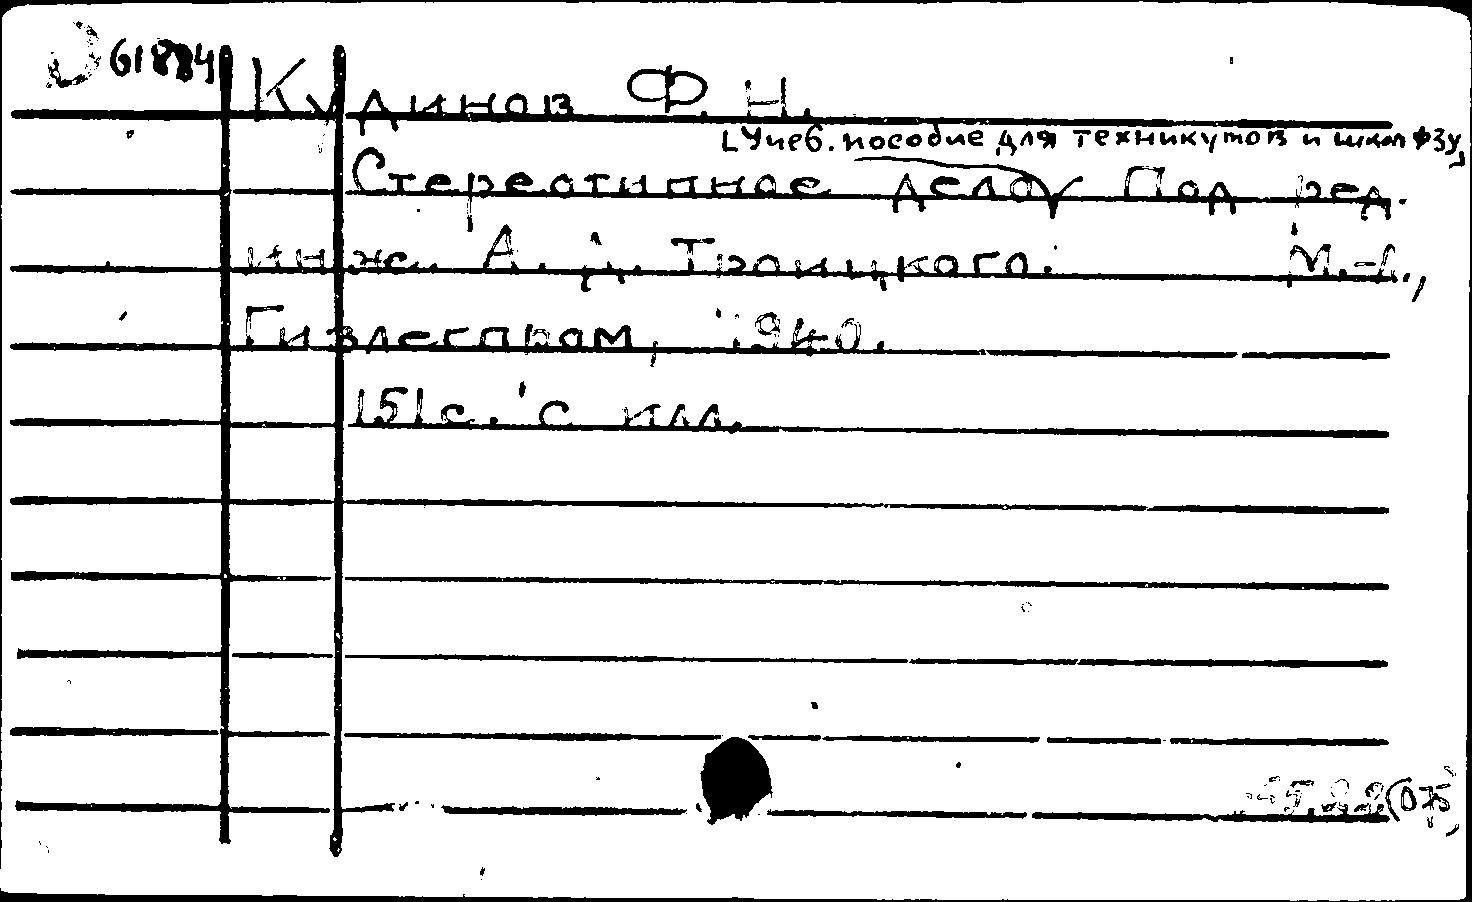 61884
Кудинов Ф. Н.
[Учеб. пособие для техникумов и школ ФЗУ,
Стереотипное дело Под ред.
инж. А. Д. Троицкого. М.-Л.,
Гизлегпром, 1940.
151 с. с илл.
(075)